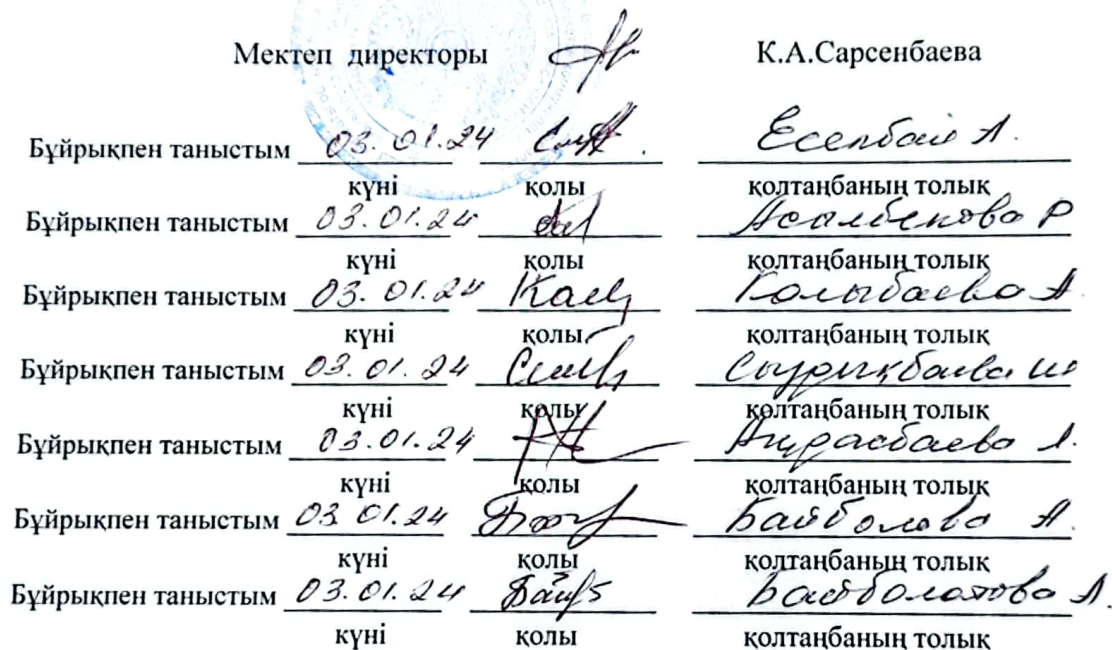 Мектеп директоры К.А.Сарсенбаева
Бұйрықпен таныстым 03.01.24 Есенбай А.
күні қолы қолтаңбаның толық
Бұйрықпен таныстым 03.01.24 Асылбекова Р
күні қолы қолтаңбаның толық
Бұйрықпен таныстым 03.01.24 Қалыбаева А
күні қолы қолтаңбаның толық
Бұйрықпен таныстым 03.01.24 Сыздықбаева Ш
күні қолы қолтаңбаның толық
Бұйрықпен таныстым 03.01.24
күні қолы қолтаңбаның толық
Бұйрықпен таныстым 03.01.24 Байболова А.
күні қолы қолтаңбаның толық
Бұйрықпен таныстым 03.01.24 Байболатова А.
күні қолы қолтаңбаның толық